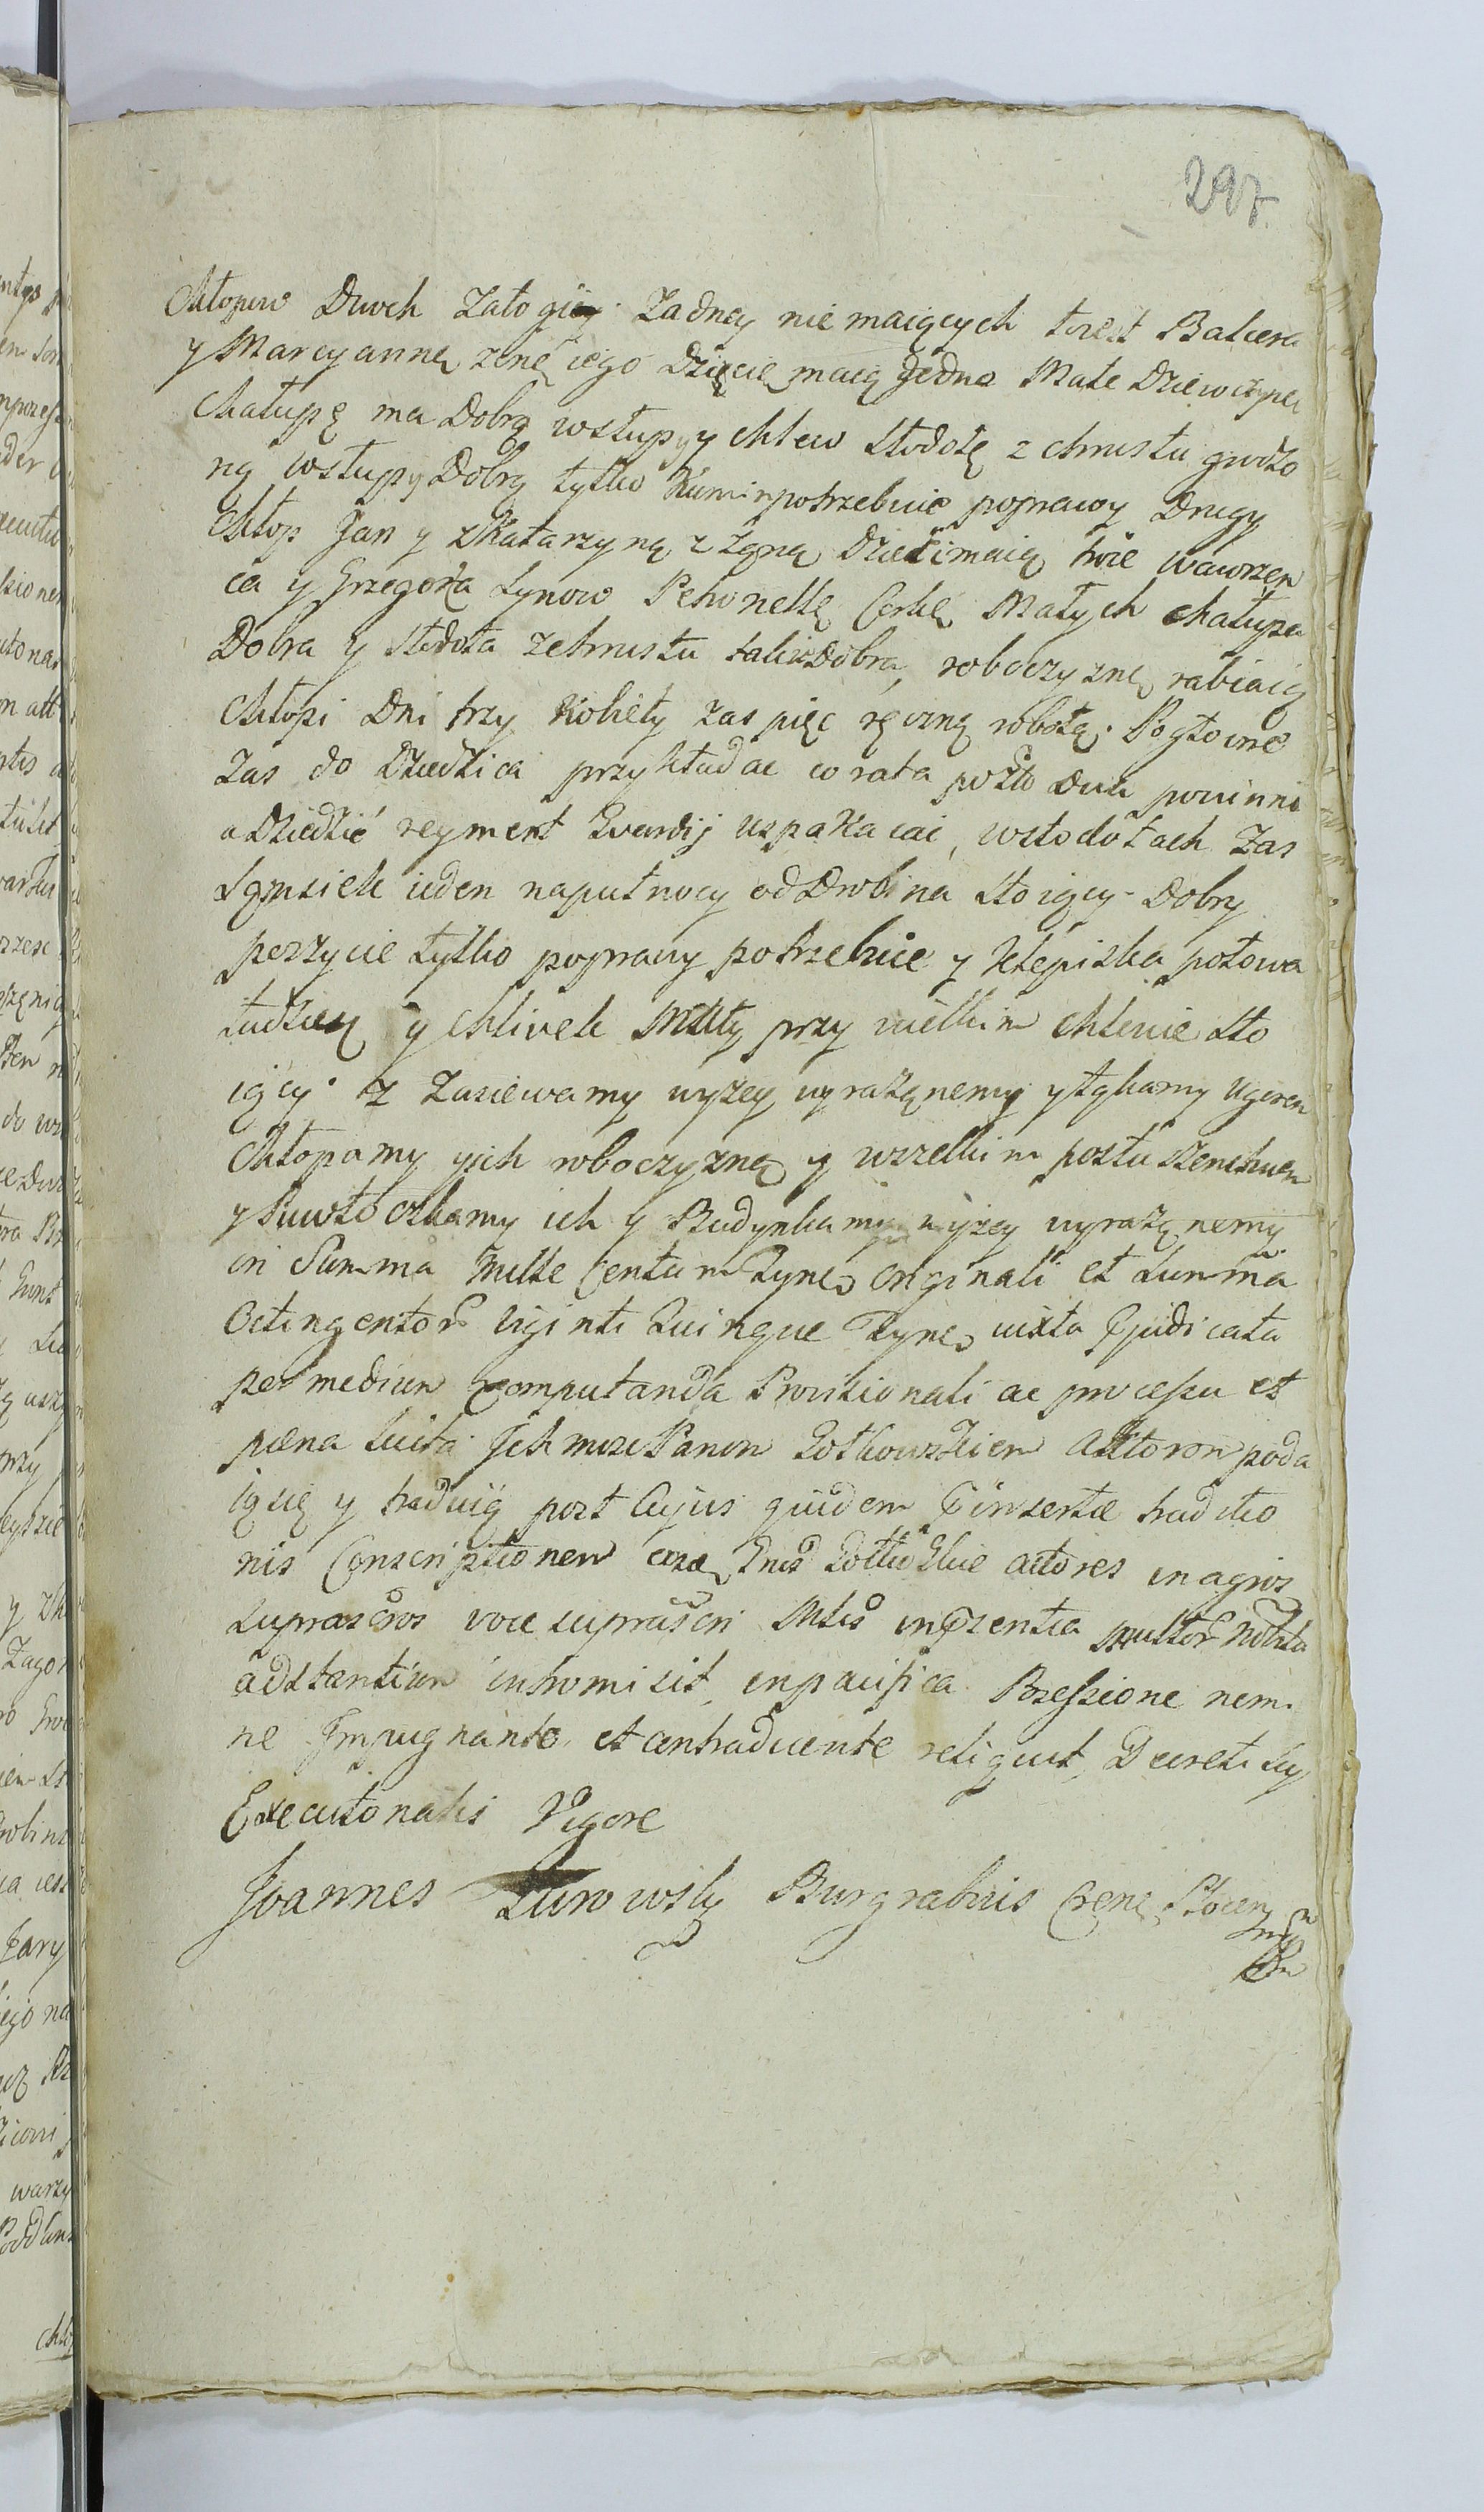 297.
Chłopow Dwoch Załogi Zadney nie maiących to iest
y Maryannę zonę iego Dziecię maią Jedno Małe Dziewczyne
Chałupę ma Dobrą wsłupy y chlew Stodołę z chrustu grodzo
ną wsłupy Dobrą tylko Kumin potrzebuie poprawy Drugy
Chłop Jan y z Katarzyną z Zoną Dzieci maią troie Wawrzen
ca y Grzegorza Synow Petronellę Corkę Małych Chałupa
Dobra y Stodoła z chrustu także Dobra, roboczyznę rabiaią
Chłopi Dni trzy Kobiety zas pięc ręczną robotą. Pogłowne
zas do Dziedzica przykładac co rata po zło Dwa powinni
a Dziedzic regment Gwardij uspakaiai, wstodołach Zas
Sąmsiek ieden napułnocy od Drobina stoiący Dobry
poszycie tylko poprawy potrzebuie y klepiska połowa
tudziesz y chlivek Mały przy wielkim chlewie sto
iący z Zasiewamy wyzey wyrazonemy y łąkamy Ugorem
Chłopamy yich roboczyzną y wszelkim posłuszenstwem
y Powłoczkamy ich y Budynkamy wyzey wyrazonemy
in Summa Mille Centum Tynf originali et Summa
Octingentor Viginti Quinque Tynf iuxta
per medium computanda Provisionali ac processu et
pæna luita Jchmosc Panom Gołkowskiem Actorom poda
ią się y traduią post Cujus quidem insertæ traditio
nis Conscriptionem Dnos actores in agros
suprascros voce suprascri Mlis in Præsentia multor Nobiliu
adstantium intromisit, in pacifica Possessione nemi
ne Impugnante et contradicente reliquit, Decreti sui
Executorialis Vigore
Joannes Zurowsky Burgrabius